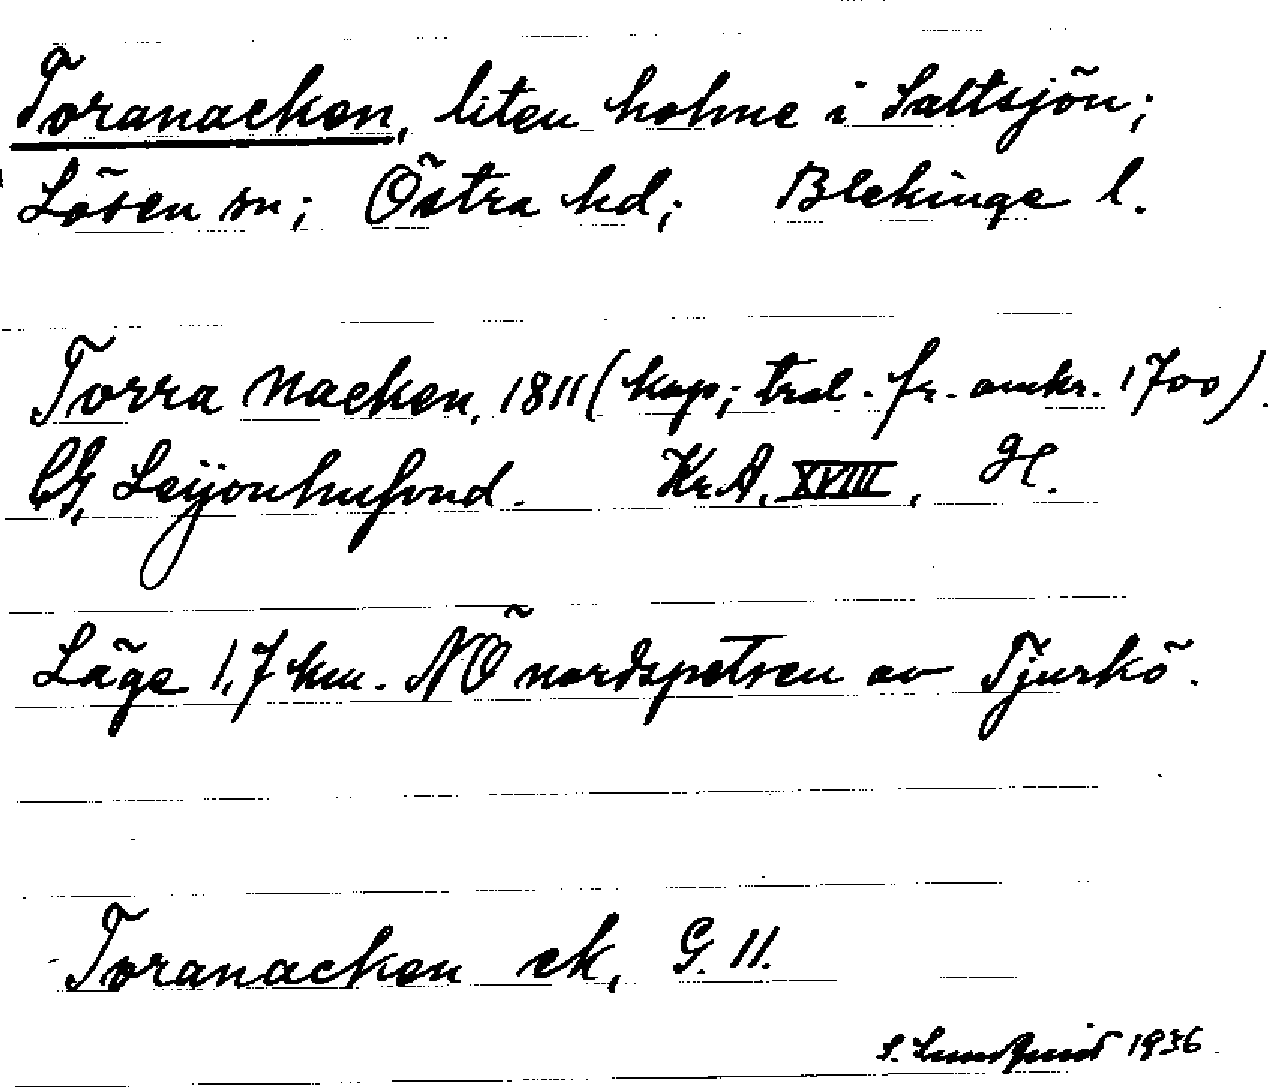 Toranacken, liten holme i Saltsjön;
Lösen sn; Östra hd; Blekinge l.
Torra Nacken, 1811 (kop; trol. fr. omkr. 1700).
CG, Leijonhufvud. Kr.A. XVIII, H.
Läge 1,7 km. NÖ nordspetsen av Tjurkö.
Toranacken ek, G. 11.
S. Lundquist 1936